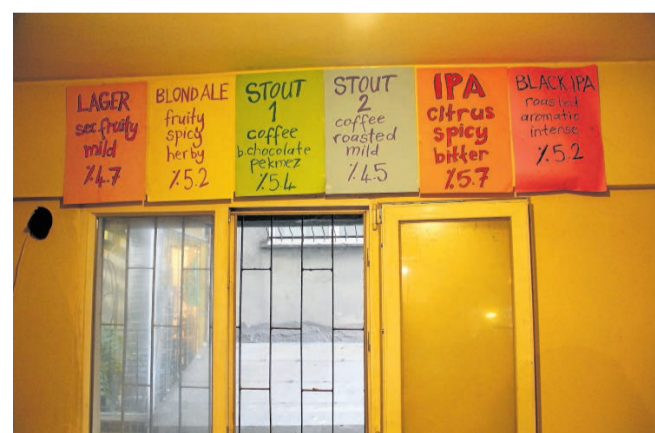 LAGER
sec fruity
mild
%4.7
BLOND ALE
fruity
spicy
herby
%5.2
STOUT
1
coffee
b.chocolate
pekmez
%5.4
STOUT
2
coffee
roasted
mild
%4.5
IPA
citrus
spicy
bitter
%5.7
BLACK IPA
roasted
aromatic
intense
%5.2